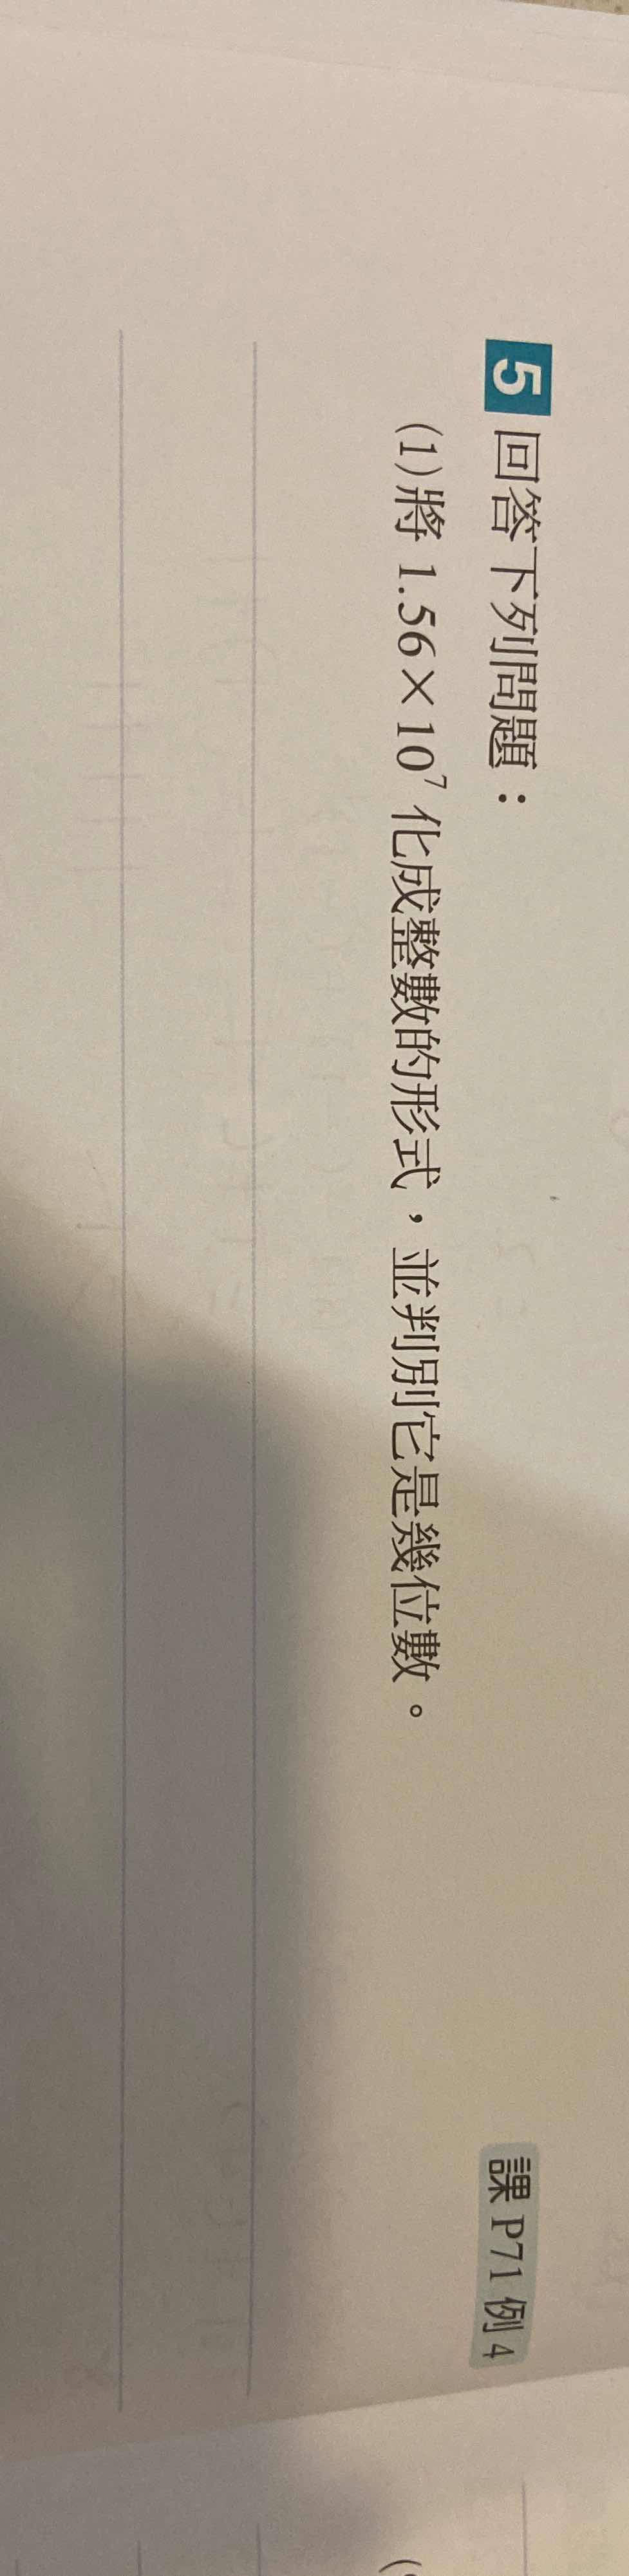 5 回答下列問題：
課 P71 例 4
(1)將 1.56×10⁷ 化成整數的形式，並判別它是幾位數。